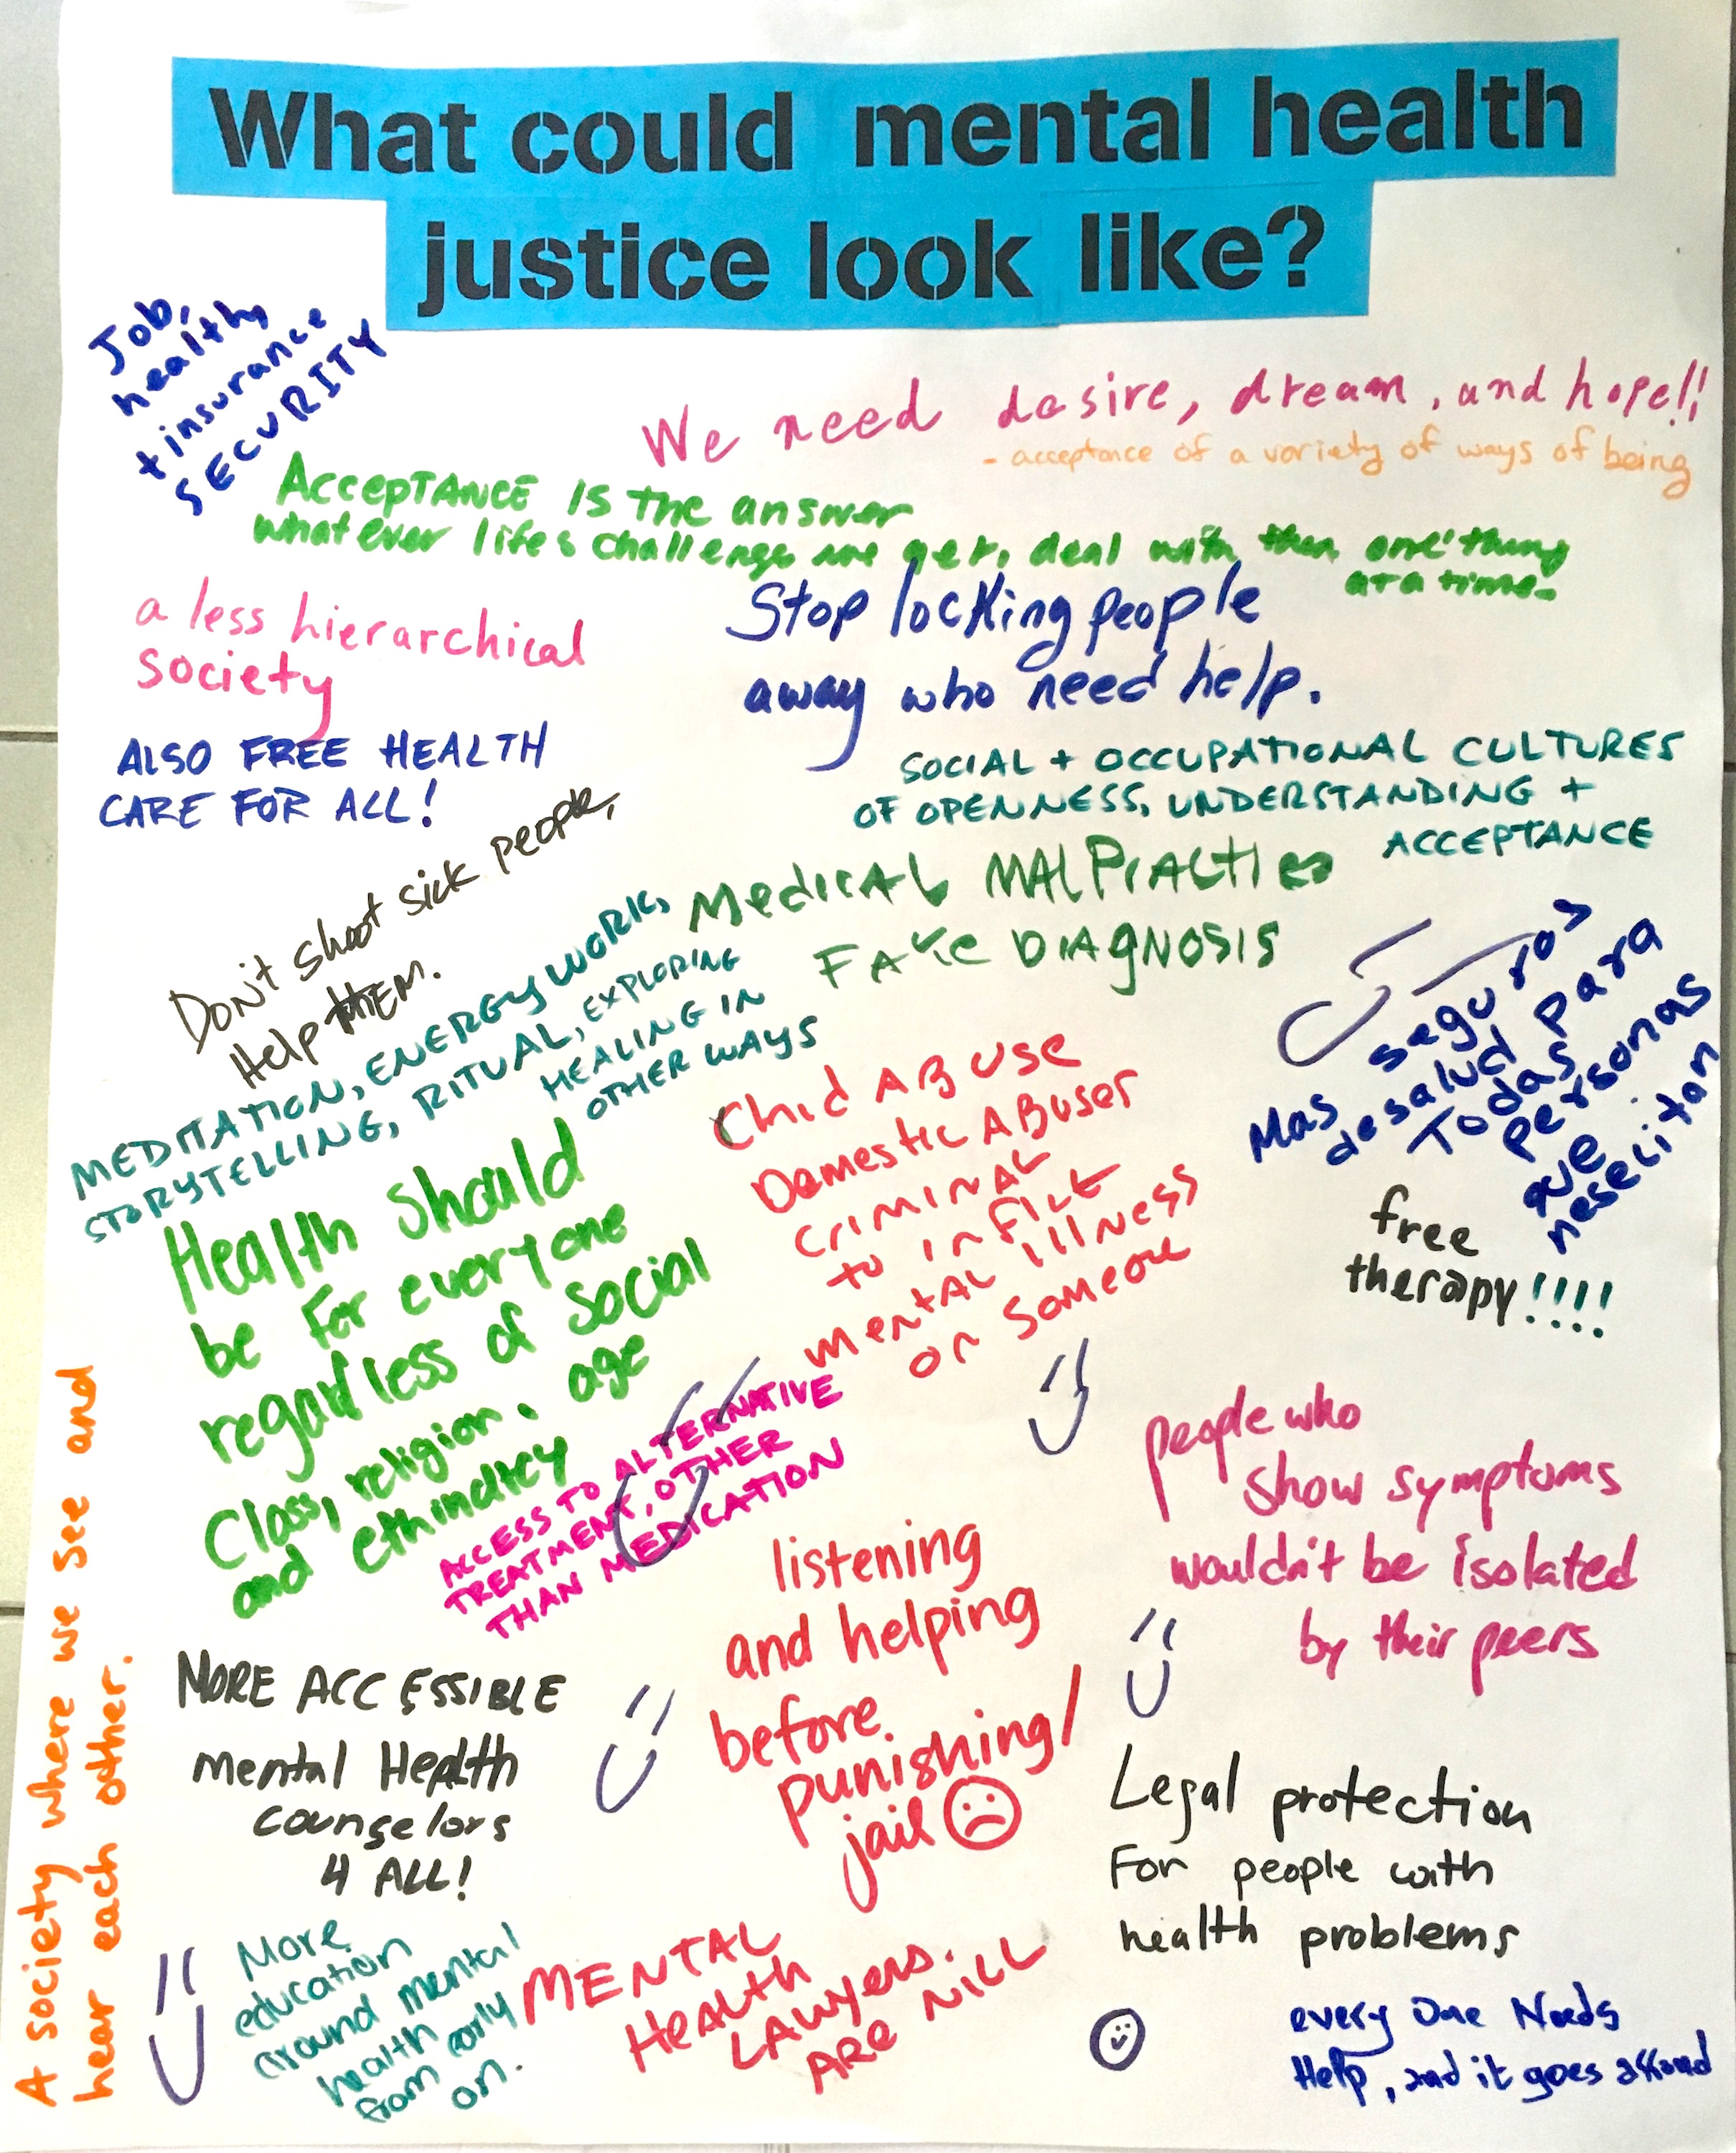 What could mental health
justice look like?
Job,
health
+ insurance
SECURITY
We need desire, dream, and hope!!
- acceptance of a variety of ways of being
AccepTANCE IS the answer
whatever life's challenge are get, deal with then one thing
at a time.
a less hierarchical
society
Stop locking people
away who need help.
ALSO FREE HEALTH
CARE FOR ALL!
SOCIAL + OCCUPATIONAL CULTURES
OF OPENNESS, UNDERSTANDING +
ACCEPTANCE
Don't shoot sick people,
Help THEM.
Medical MAlPractice
FAKe DIAgNOSIS
MEDITATION, ENERGY WORK,
STORYTELLING, RITUAL, EXPLORING
HEALING IN
OTHER WAYS
Mas seguros
desalud para
Todas
personas
que
neselitan
Chid ABUSe
Domestic ABuser
criminal
to inflict
mental illness
on someone
Health should
be for everyone
regardless of social
Class, religion, age
and ethindicy
free
therapy!!!!
ACCESS TO ALTERNATIVE
TREATMENT, OTHER
THAN MEDICATION
people who
show symptoms
wouldn't be isolated
by their peers
listening
and helping
before
punishing/
jail
A society where we see and
hear each other.
MORE ACCESSIBLE
mental Health
counselors
4 ALL!
Legal protection
For people with
health problems
More
education
around mental
health
from early
on.
MENTAL
Health
LAWyers.
ARe NiLL
every One Needs
Help, and it goes around